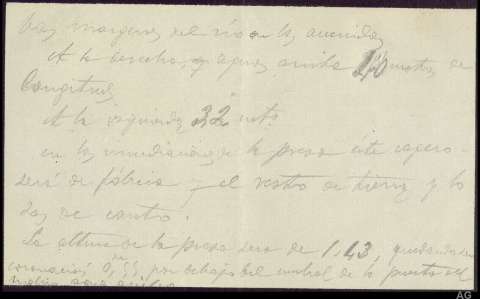 las margenes del río en las avenidas
A la derecha, y aguas arriba 140 metros de
longitud,
A la izquierda 32 mts.
en las inmediaciones de la presa este cajero
será de fábrica y el resto de tierra y lo
das de canto.
La altura de la presa sera de 1,43, quedando su
coronación 0,m55 por debajo del umbral de la puerta del
molino aguas arriba
AG